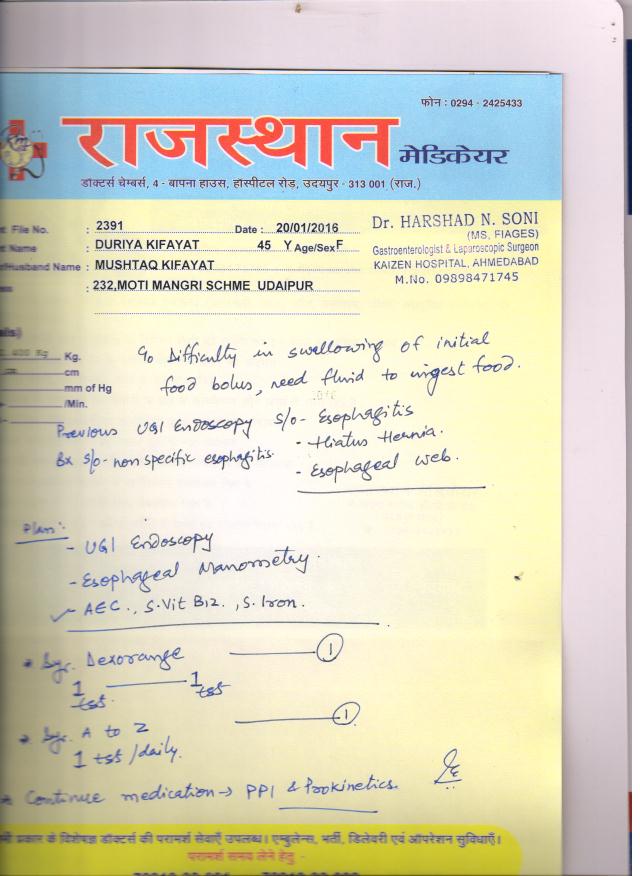 फोन : 0294 - 2425433
राजस्थान मेडिकेयर
डॉक्टर्स चेम्बर्स, 4 - बापना हाउस, हॉस्पीटल रोड़, उदयपुर - 313 001 (राज.)
File No. : 2391 Date : 20/01/2016
Name : DURIYA KIFAYAT 45 Y Age/Sex F
/Husband Name : MUSHTAQ KIFAYAT
: 232,MOTI MANGRI SCHME UDAIPUR
Dr. HARSHAD N. SONI
(MS, FIAGES)
Gastroenterologist & Laparoscopic Surgeon
KAIZEN HOSPITAL, AHMEDABAD
M.No. 09898471745
Kg.
cm
mm of Hg
/Min.
c/o Difficulty in swallowing of initial
food bolus, need fluid to ingest food.
Previous UGI Endoscopy s/o - Esophagitis
- Hiatus Hernia.
Bx s/o - non specific esophagitis.
- Esophageal web.
Plan :-
- UGI Endoscopy
- Esophageal Manometry.
✓ AEC., S.Vit B12., S. Iron.
Syr. Dexorange 1
1 tsf. 1 tsf
Syr. A to Z 1
1 tsf /daily.
Continue medication → PPI & Prokinetics.
भी प्रकार के विशेषज्ञ डॉक्टर्स की परामर्श सेवाएँ उपलब्ध। एम्बुलेन्स, भर्ती, डिलेवरी एवं ऑपरेशन सुविधाएँ।
परामर्श समय लेने हेतु -